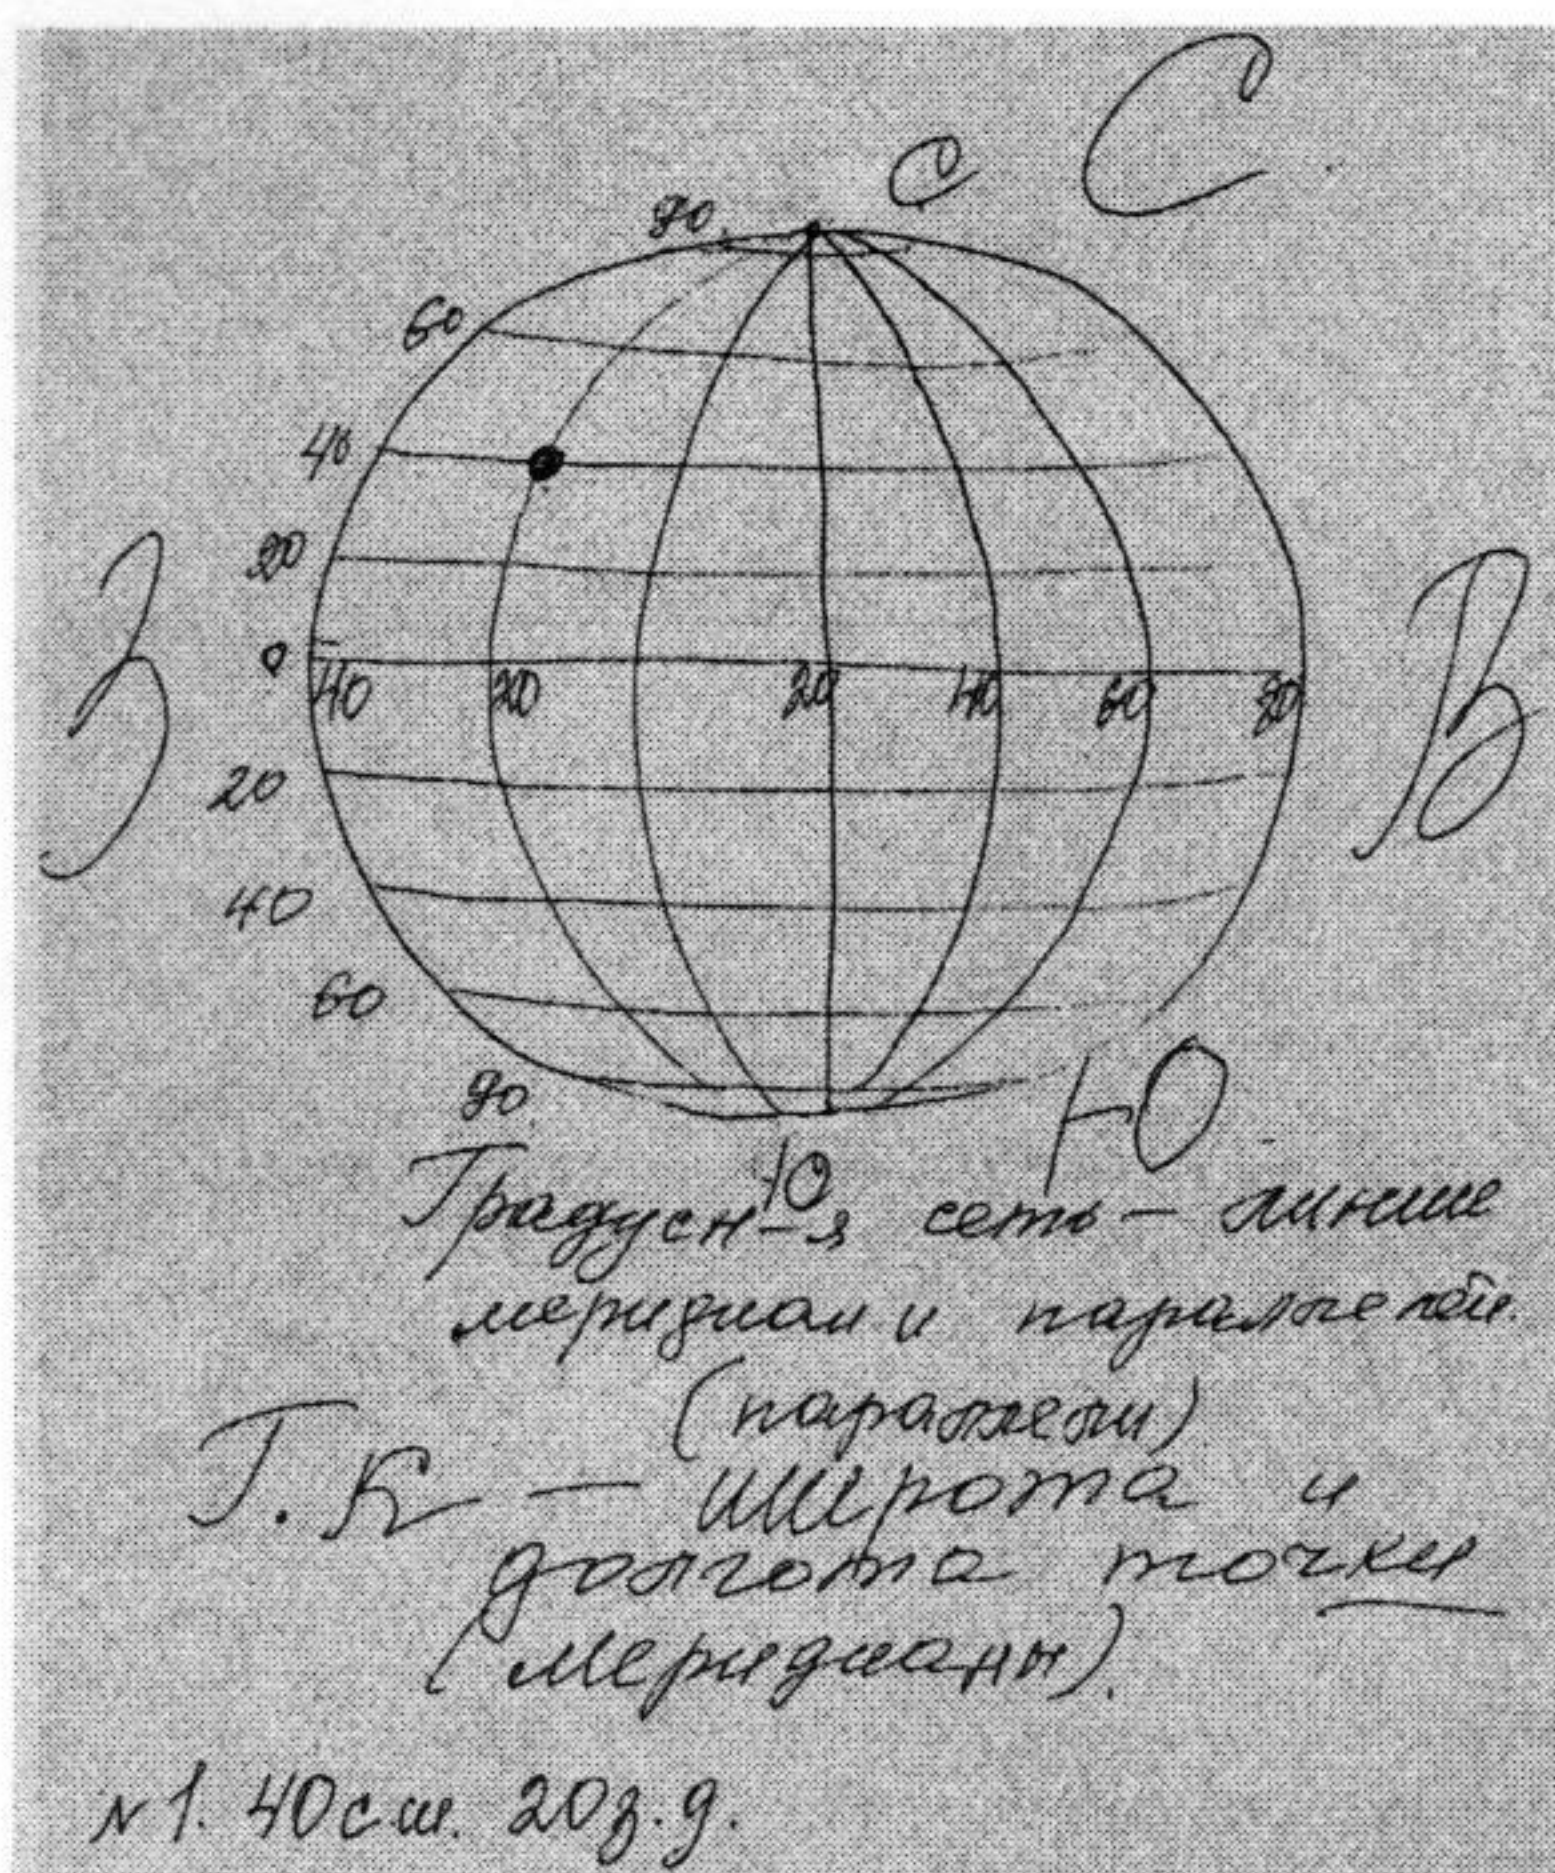 С
С
90
60
40
З
20
В
0
40 20 20 40 60 80
20
40
60
90
Ю
Ю
Градусн-я сеть – линие
меридиан и параллелей.
(параллели)
Г. К – широта и
долгота точки
(меридианы).
№1. 40 с ш. 20 з. д.